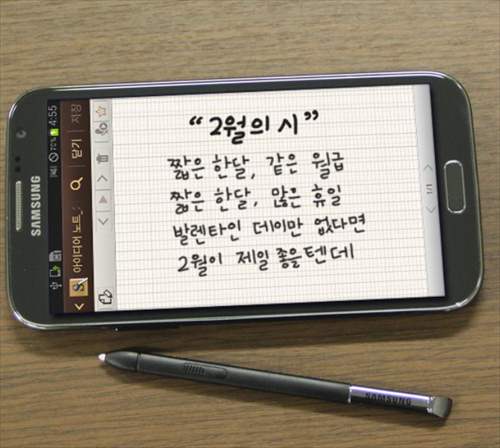 "2월의 시"
짧은 한달, 같은 월급
짧은 한달, 많은 휴일
발렌타인 데이만 없다면
2월이 제일 좋을텐데
SAMSUNG
4:55
70%
아이디어 노트_
닫기
저장
1/1
SAMSUNG